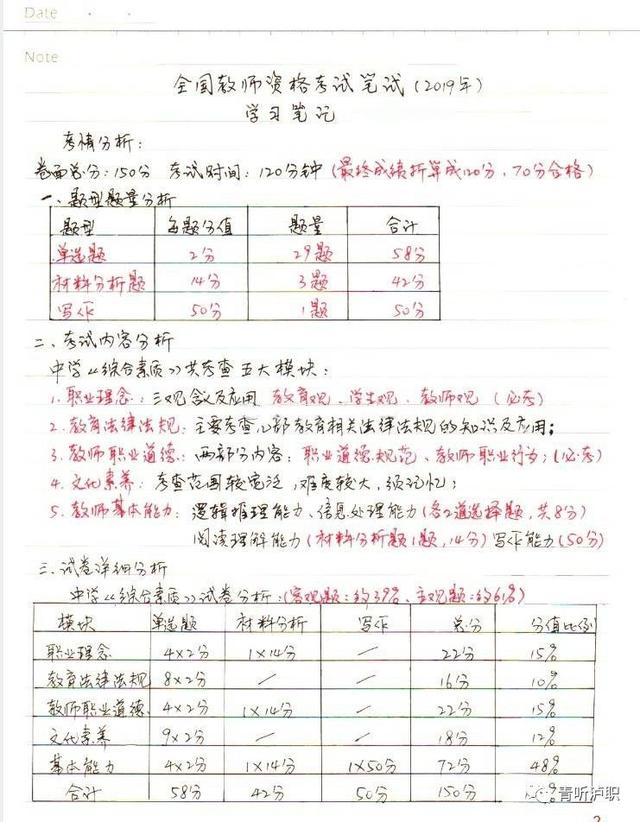 Date
Note
全国教师资格考试笔试(2019年)
学习笔记
考情分析:
卷面总分:150分 考试时间:120分钟(最终成绩折算成120分、70分合格)
一、题型题量分析
题型 每题分值 题量 合计
单选题 2分 29题 58分
材料分析题 14分 3题 42分
写作 50分 1题 50分
二、考试内容分析
中学《综合素质》共考查五大模块:
1.职业理念:三观含义及应用 教育观、学生观、教师观(必考)
2.教育法律法规:主要考查八部教育相关法律法规的知识及应用;
3.教师职业道德:两部分内容:职业道德规范、教师职业行为;(必考)
4.文化素养:考查范围较宽泛,难度较大,须记忆;
5.教师基本能力:逻辑推理能力、信息处理能力(各2道选择题,共8分)
阅读理解能力(材料分析题1题,14分)写作能力(50分)
三、试卷详细分析
中学《综合素质》试卷分析:(客观题:约39%、主观题:约61%)
模块 单选题 材料分析 写作 总分 分值比例
职业理念 4×2分 1×14分 / 22分 15%
教育法律法规 8×2分 / / 16分 10%
教师职业道德 4×2分 1×14分 / 22分 15%
文化素养 9×2分 / / 18分 12%
基本能力 4×2分 1×14分 1×50分 72分 48%
合计 58分 42分 50分 150分
青听泸职
2